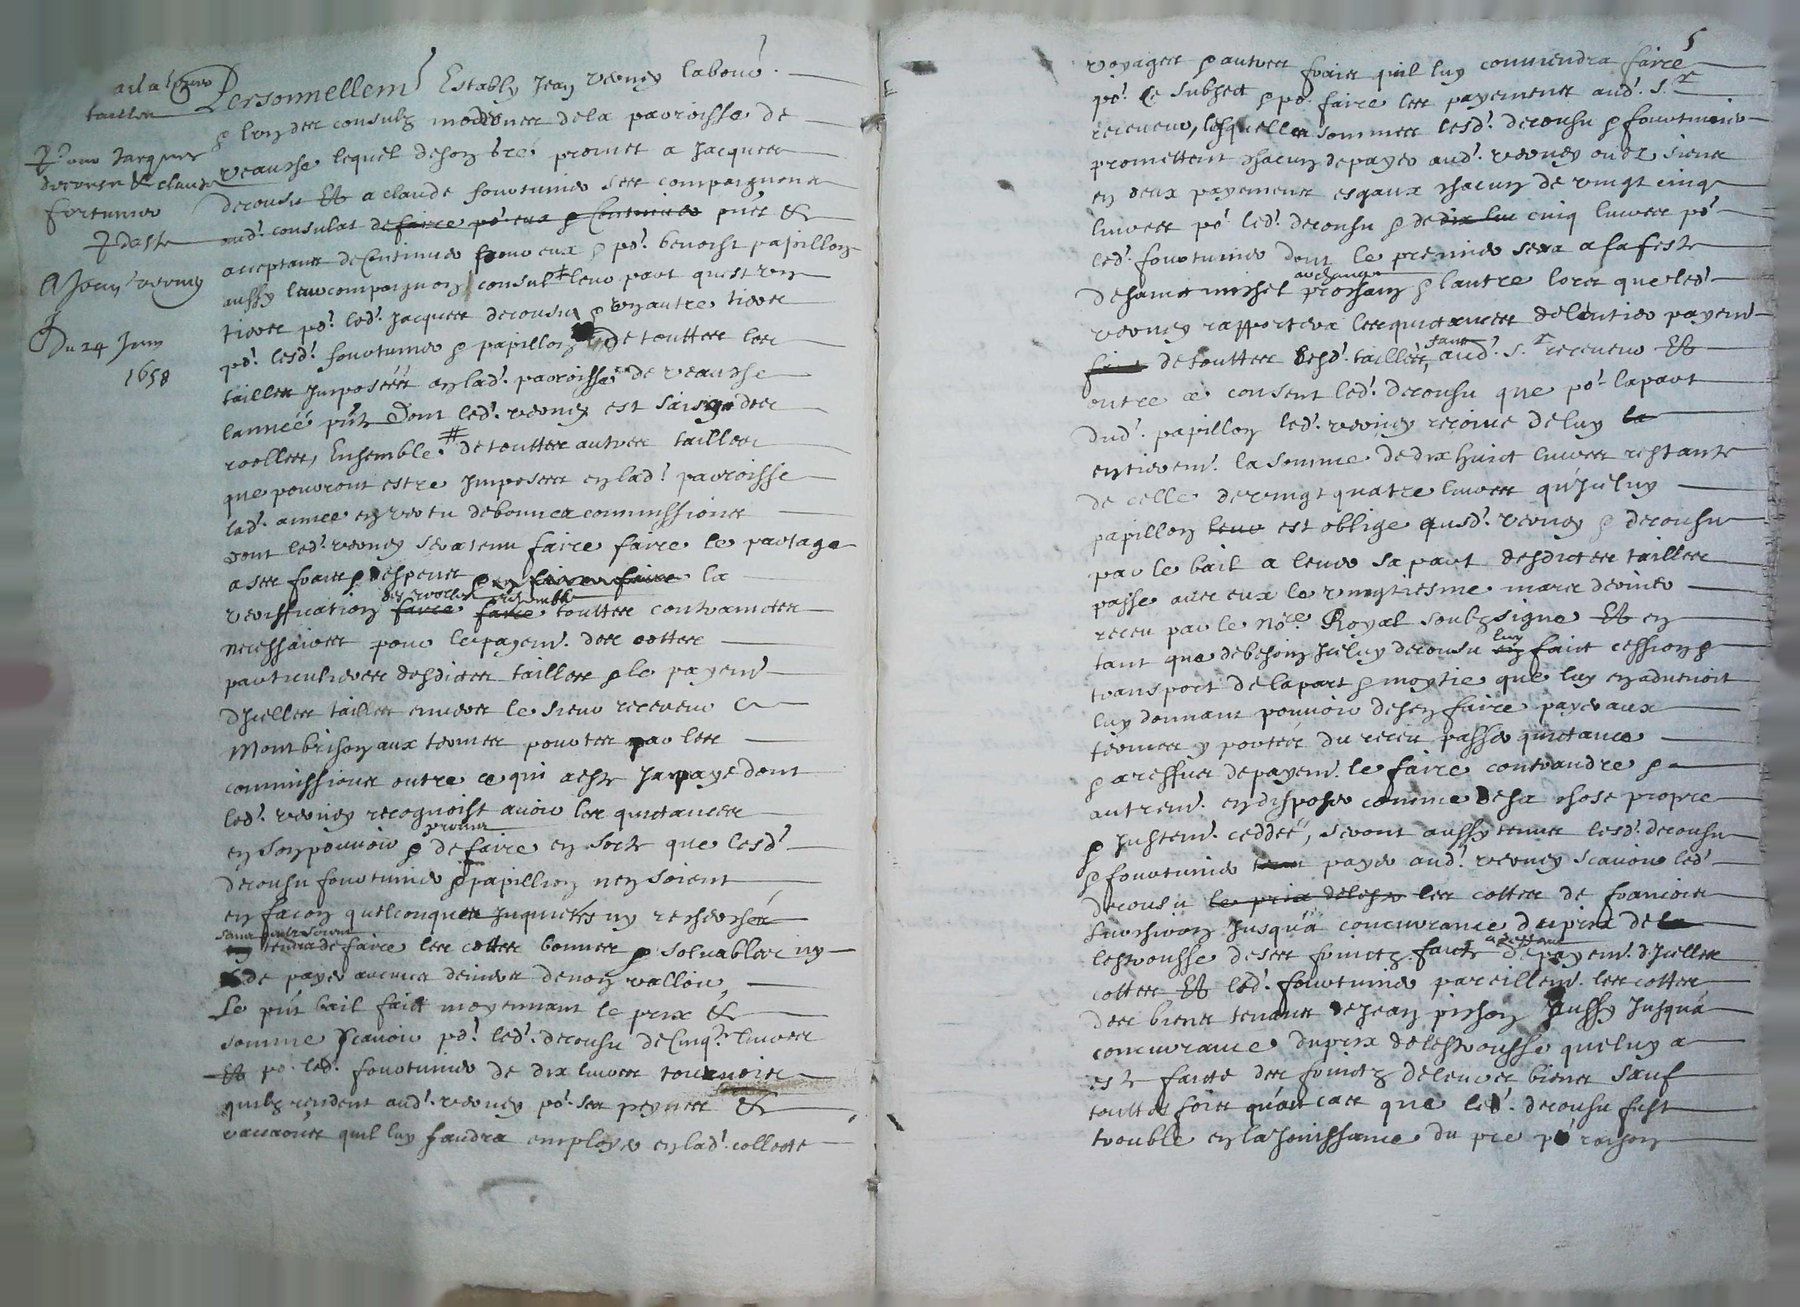 tailler
p.o. par Jacques
decousu & claude
fortunier
A Jean verney
Du 24 Juin
1658
Personnellemt Estably Jean verney labour.
& l'un des consulz modernes de la parroisse de
veausse lequel de son gré promet a Jacques
decousu Et a claude fourtunier ses compaignons
aud. consulat pnts &
acceptant de continuer pour eux & po. benoist papillon
aussy leur compaignon consul leur part quest un
tiers po. led. Jacques decousu & un autre tiers
po. lesd. fourtunier & papillon de touttes les
tailles Imposées en lad. parroisse de veausse
lannée pnt Dont led. verney est saisy des
rolles, Ensemble # de touttes autres tailles
que pourront estre Imposees en lad. parroisse
lad. annee en vertu de bonnes commissions
dont led. verney sera tenu faire faire le partage
a ses frais & despens la
veriffication ensemble touttes contrainctes
necessaires pour le payem. des cottes
particulieres desdictes tailles & le payemt
d'Jcelles tailles envers le sieur receveur a
Montbrison aux termes portes par les
commissions outre ce qui a esté Ja payé dont
led. verney recognoist avoir les quictances
en son pouvoir & promis de faire en sorte que lesd.
decousu fourtunier & papillion nen soient
en facon quelconques Inquiettes ny recherchés
sans estre tenus de faire les cottes bonnes & solvables ny
de payer aucuns deniers de non valleur,
Le pnt bail faict moyennant le prix &
somme scavoir po. led. decousu de cinq. livres
Et po. led. fourtunier de dix livres tournois
quilz rendent aud. verney po. ses peynes &
vaccaons quil luy faudra employer en lad. collecte
5
voyages & autres frais quil luy conviendra faire
po. ce subject & po. faire les payements aud. s.r
receveur, lesquelles sommes lesd. decousu & fourtunier
promettent chacun de payer aud. verney ou aux siens
en deux payements esgaux chacun de vingt cinq
livres po. led. decousu & de dix liv cinq livres po.
led. fourtunier dont le premier sera a la feste
de sainct michel archange prochain & lautre lors que led.
verney rapportera les quictances de lentier payemt
de touttes lesd. tailles, aud. s.r receveur Et
outre ce consent led. decousu que po. la part
dud. papillon led. verney recoive de luy la
entierem. la somme de dix huict livres restante
de celle de vingt quatre livres qu'Jceluy
papillon leur est oblige ausd. verney & decousu
par le bail a leuer sa part desdictes tailles
passe avec eux le vingtiesme mars dernier
receu par le No.re Royal soubzsigne Et en
tant que de besoin Jceluy decousu luy faict cession &
transport de la part & moytie que luy en advenoit
luy donnant pouvoir de sen faire payer aux
termes y portes du receu passer quictance
& a reffus de payem. le faire contraindre &
autrem. en disposer comme de sa chose propre
& Justem. ceddée, seront aussy tenus lesd. decousu
& fourtunier payer aud. verney scavoir led.
decousu le prix delesr les cottes de francois
Jusqu'a concurrance du prix de la
lestrousse de ses fruictz a deffaut de payem. d'Jcelles
cottes Et led. fourtunier pareillem. les cottes
des biens tenants de Jean pichon Jusqu'a
concurrance du prix de lestrousse que luy a
esté faitte des fruictz de leurs biens sauf
touttes fois qu'au cas que led. decousu fust
trouble en la Jouissance du pre po. raison